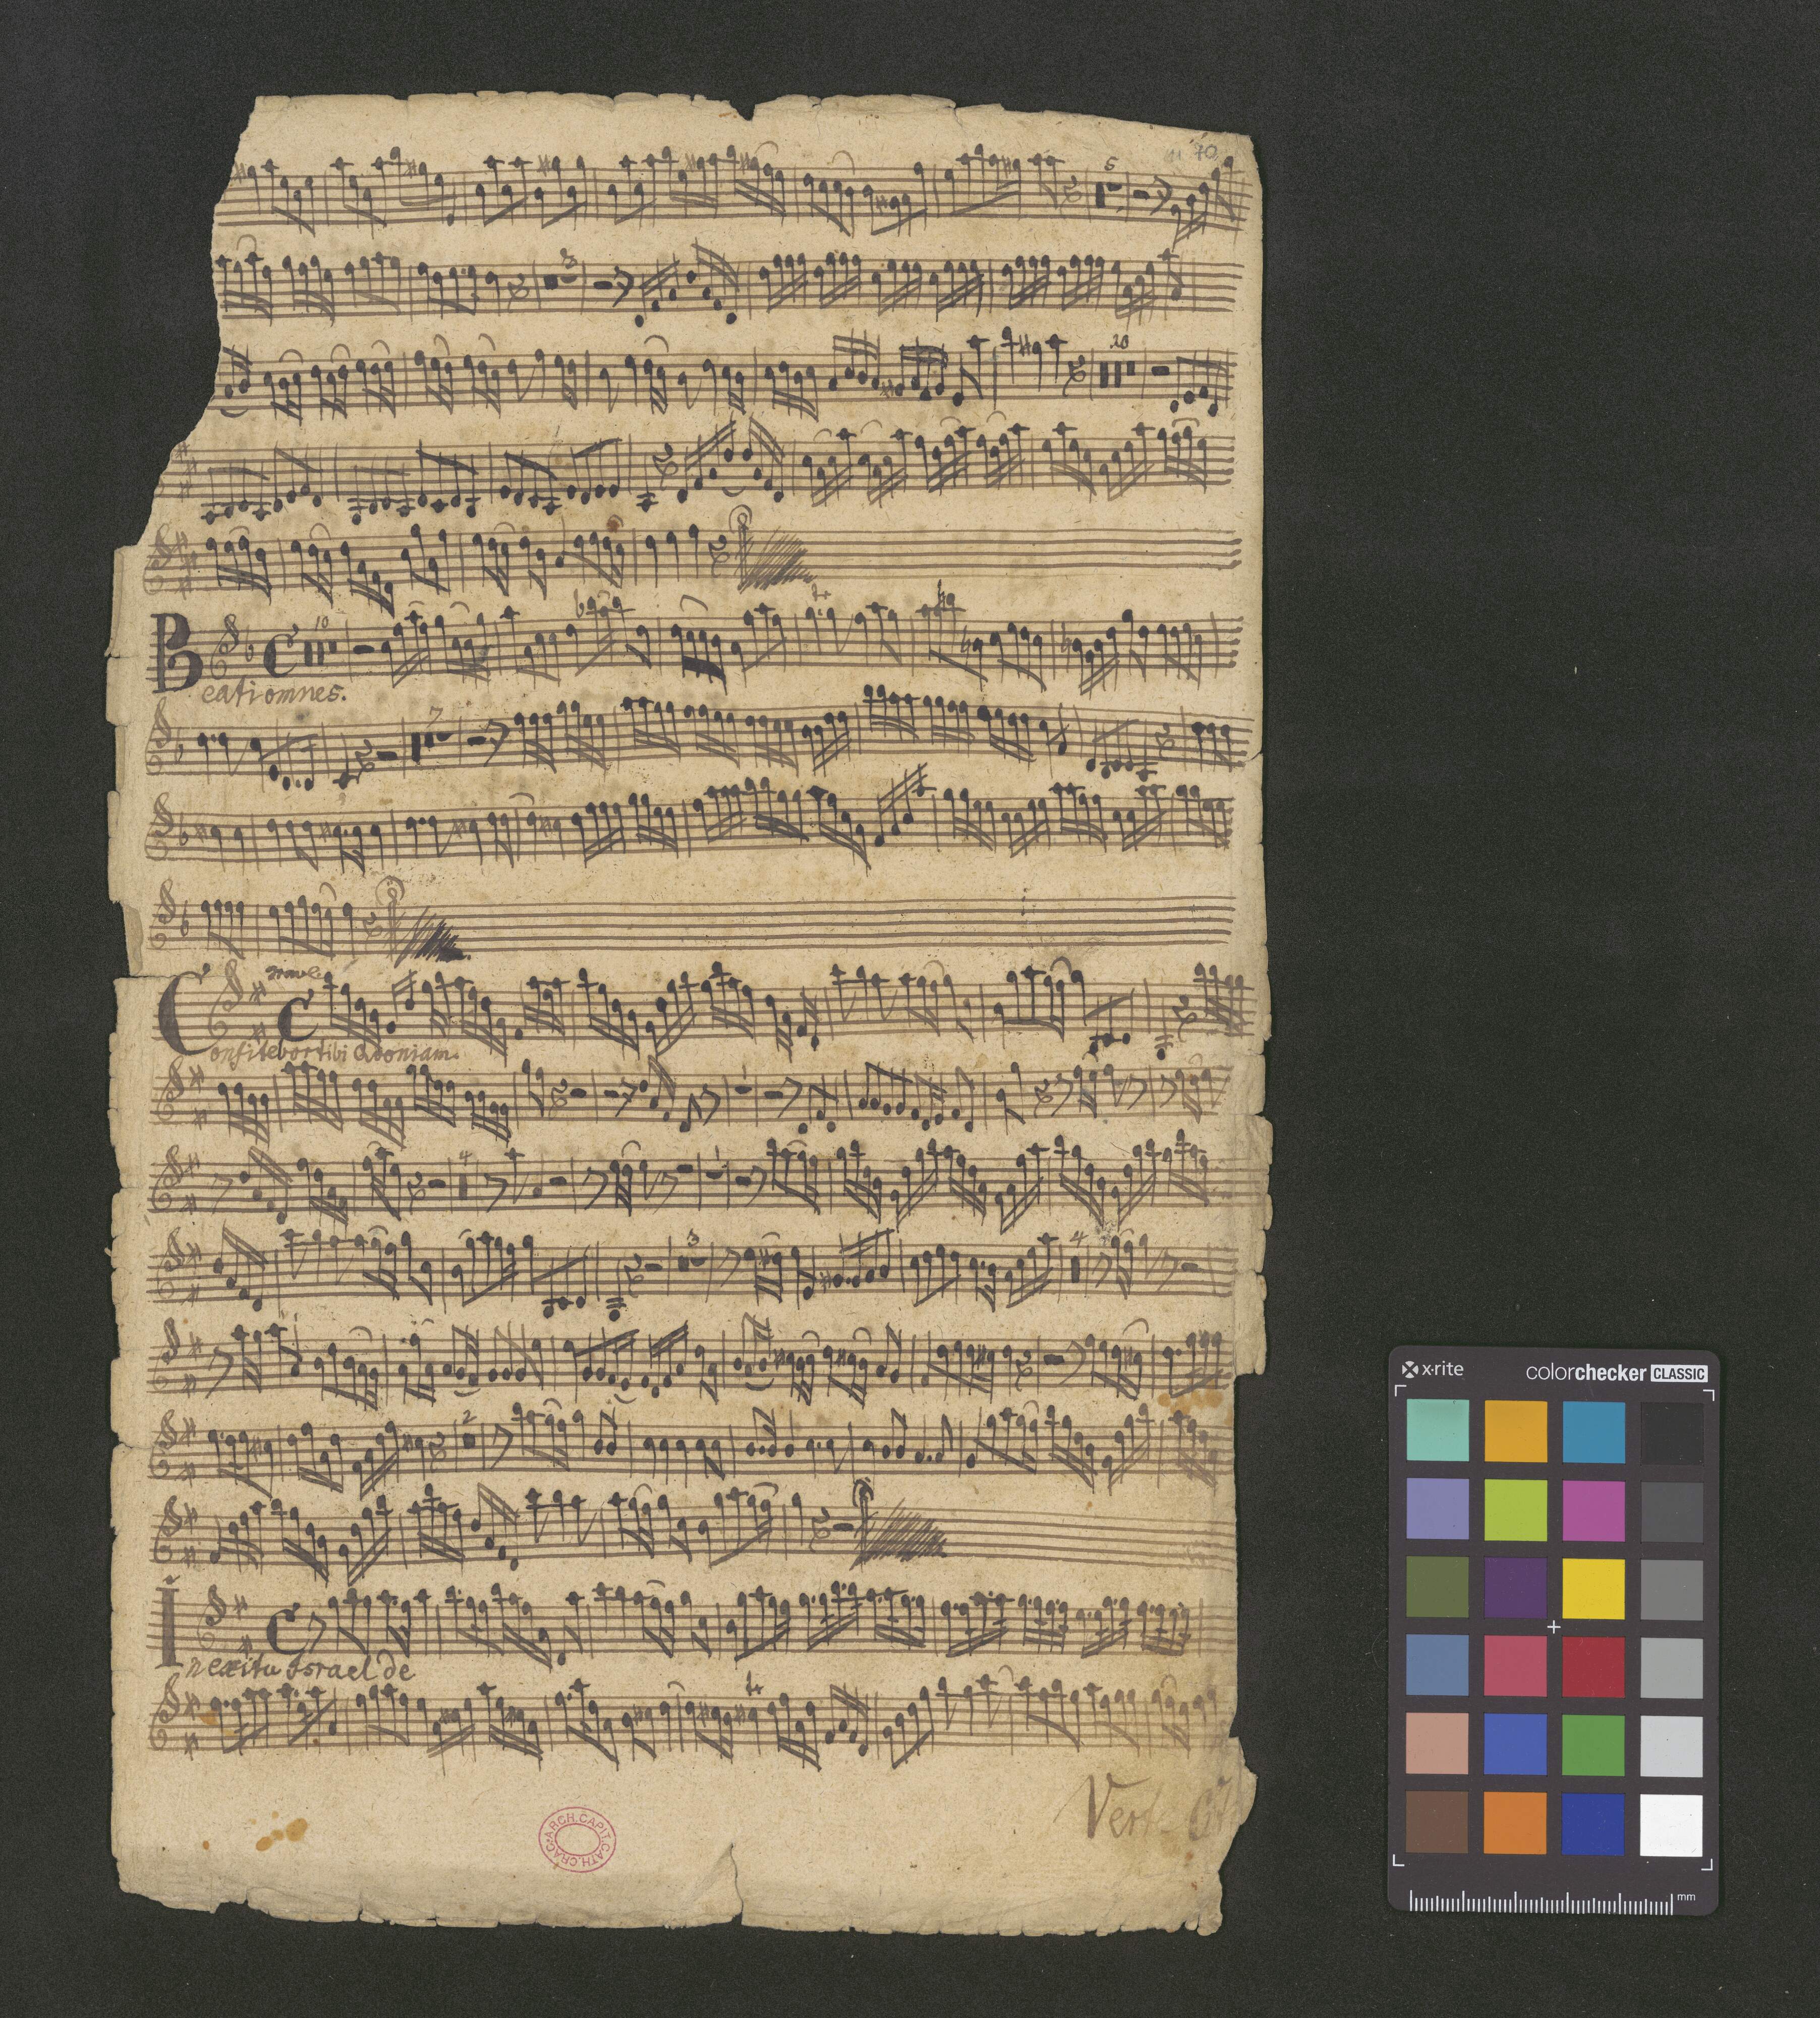 70
5
3
20
10
tr
Beati omnes.
7
Confitebor tibi Quoniam.
1
4
1
3
4
2
In exitu Israel de
tr
ARCH.CAPIT.CATH.CRAC.
x-rite
colorchecker CLASSIC
mm